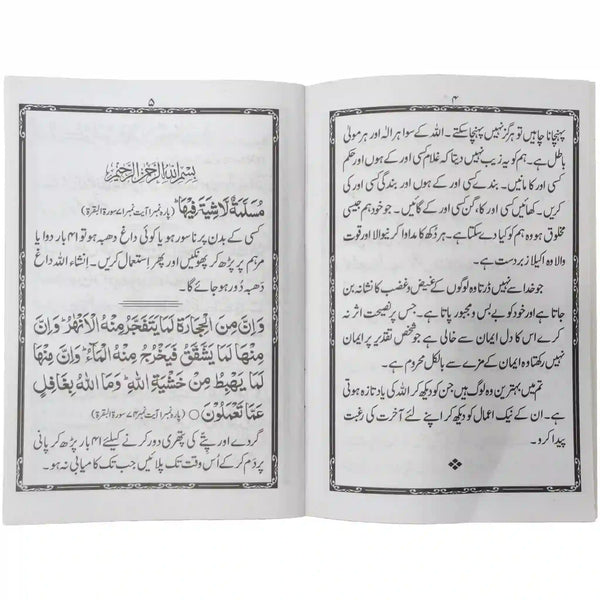 ۴
پہنچانا چاہیں تو ہرگز نہیں پہنچا سکتے۔ اللہ کے سوا ہر الٰہ اور ہر مولیٰ
باطل ہے۔ ہم کو یہ زیب نہیں دیتا کہ غلام کسی اور کے ہوں اور حکم
کسی اور کا مانیں۔ بندے کسی اور کے ہوں اور بندگی کسی اور کی
کریں۔ کھائیں کسی اور کا، گن کسی اور کے گائیں۔ جو خود ہم جیسی
مخلوق ہو وہ ہم کو کیا دے سکتا ہے۔ ہر دکھ کا مداوا کرنیوالا اور قوت
والا وہ اکیلا زبردست ہے۔
جو خدا سے نہیں ڈرتا وہ لوگوں کے غیض و غضب کا نشانہ بن
جاتا ہے اور خود کو بے بس و مجبور پاتا ہے۔ جس پر نصیحت اثر نہ
کرے اس کا دل ایمان سے خالی ہے جو شخص تقدیر پر ایمان
نہیں رکھتا وہ ایمان کے مزے سے بالکل محروم ہے۔
تم میں بہترین وہ لوگ ہیں جن کو دیکھ کر اللہ کی یاد تازہ ہوتی
ہے۔ ان کے نیک اعمال کو دیکھ کر اپنے لئے آخرت کی رغبت
پیدا کرو۔
۵
بِسْمِ اللہِ الرَّحْمٰنِ الرَّحِیْمِ
مُسَلَّمَةٌ لَّا شِيَةَ فِيْهَا (پارہ نمبر۱ آیت نمبر ۷۱ سورۃ البقرۃ)
کسی کے بدن پر ناسور ہو یا کوئی داغ دھبہ ہو تو ۴۱ بار دوا یا
مرہم پر پڑھ کر پھونکیں اور پھر استعمال کریں۔ انشاء اللہ داغ
دھبہ دُور ہو جائے گا۔
وَاِنَّ مِنَ الْحِجَارَةِ لَمَا يَتَفَجَّرُ مِنْهُ الْاَنْهٰرُ ؕ وَاِنَّ
مِنْهَا لَمَا يَشَّقَّقُ فَيَخْرُجُ مِنْهُ الْمَآءُ ؕ وَاِنَّ مِنْهَا
لَمَا يَهْبِطُ مِنْ خَشْيَةِ اللّٰهِ ؕ وَمَا اللّٰهُ بِغَافِلٍ
عَمَّا تَعْمَلُوْنَ ○ (پارہ نمبر۱ آیت نمبر ۷۴ سورۃ البقرۃ)
گردے اور پتّے کی پتھری دور کرنے کیلئے ۴۱ بار پڑھ کر پانی
پر دَم کر کے اُس وقت تک پلائیں جب تک کامیابی نہ ہو۔